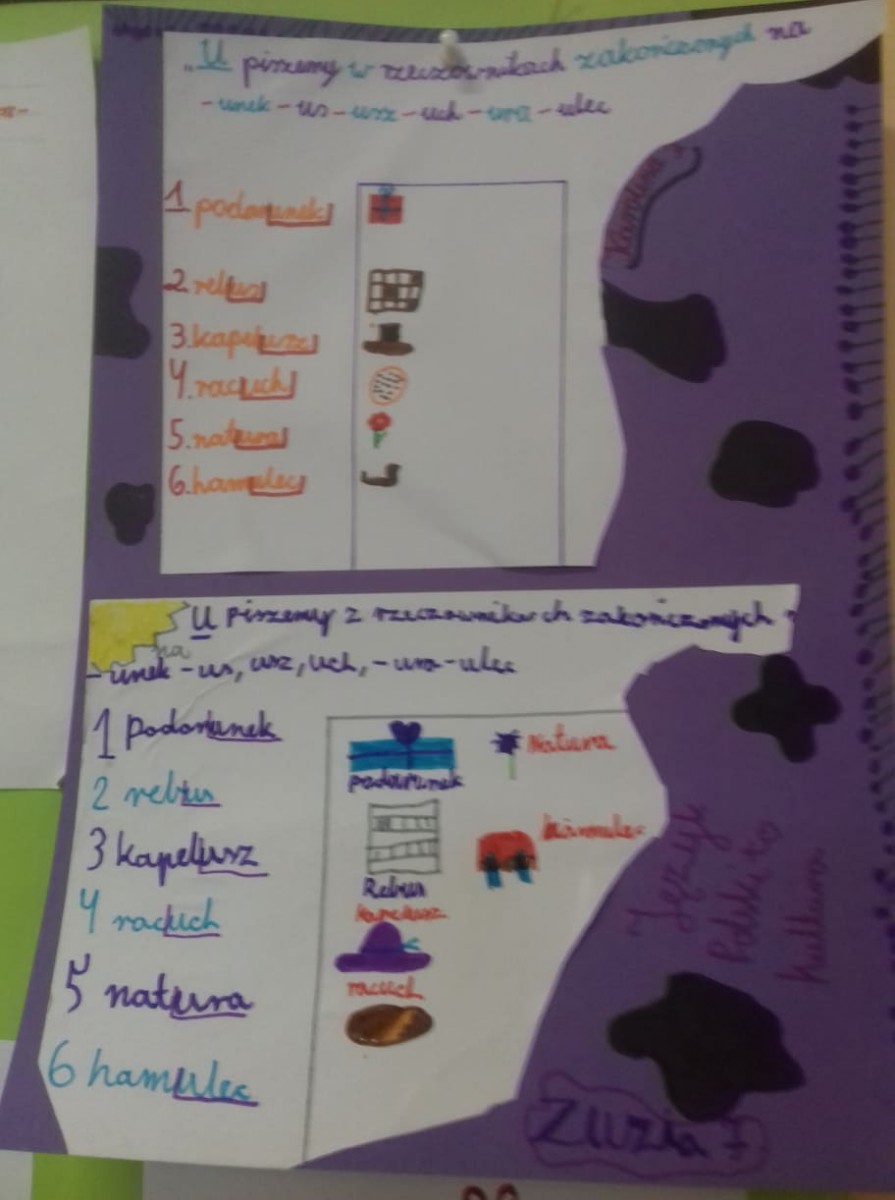 „U piszemy w rzeczownikach zakończonych na
-unek-us-usz-uch-ura-ulec
1 podarunek
2 rebus
3.kapelusz
4.racuch
5.natura
6.hamulec
Karolina
U piszemy z rzeczownikach zakończonych
na
-unek-us,usz,uch,-ura-ulec
1 Podarunek
2 rebus
3 kapelusz
4 racuch
5 natura
6 hamulec
podarunek
Natura
Rebus
hamulec
kapelusz
racuch
Język
Polski to
kultura
Zuzia 7